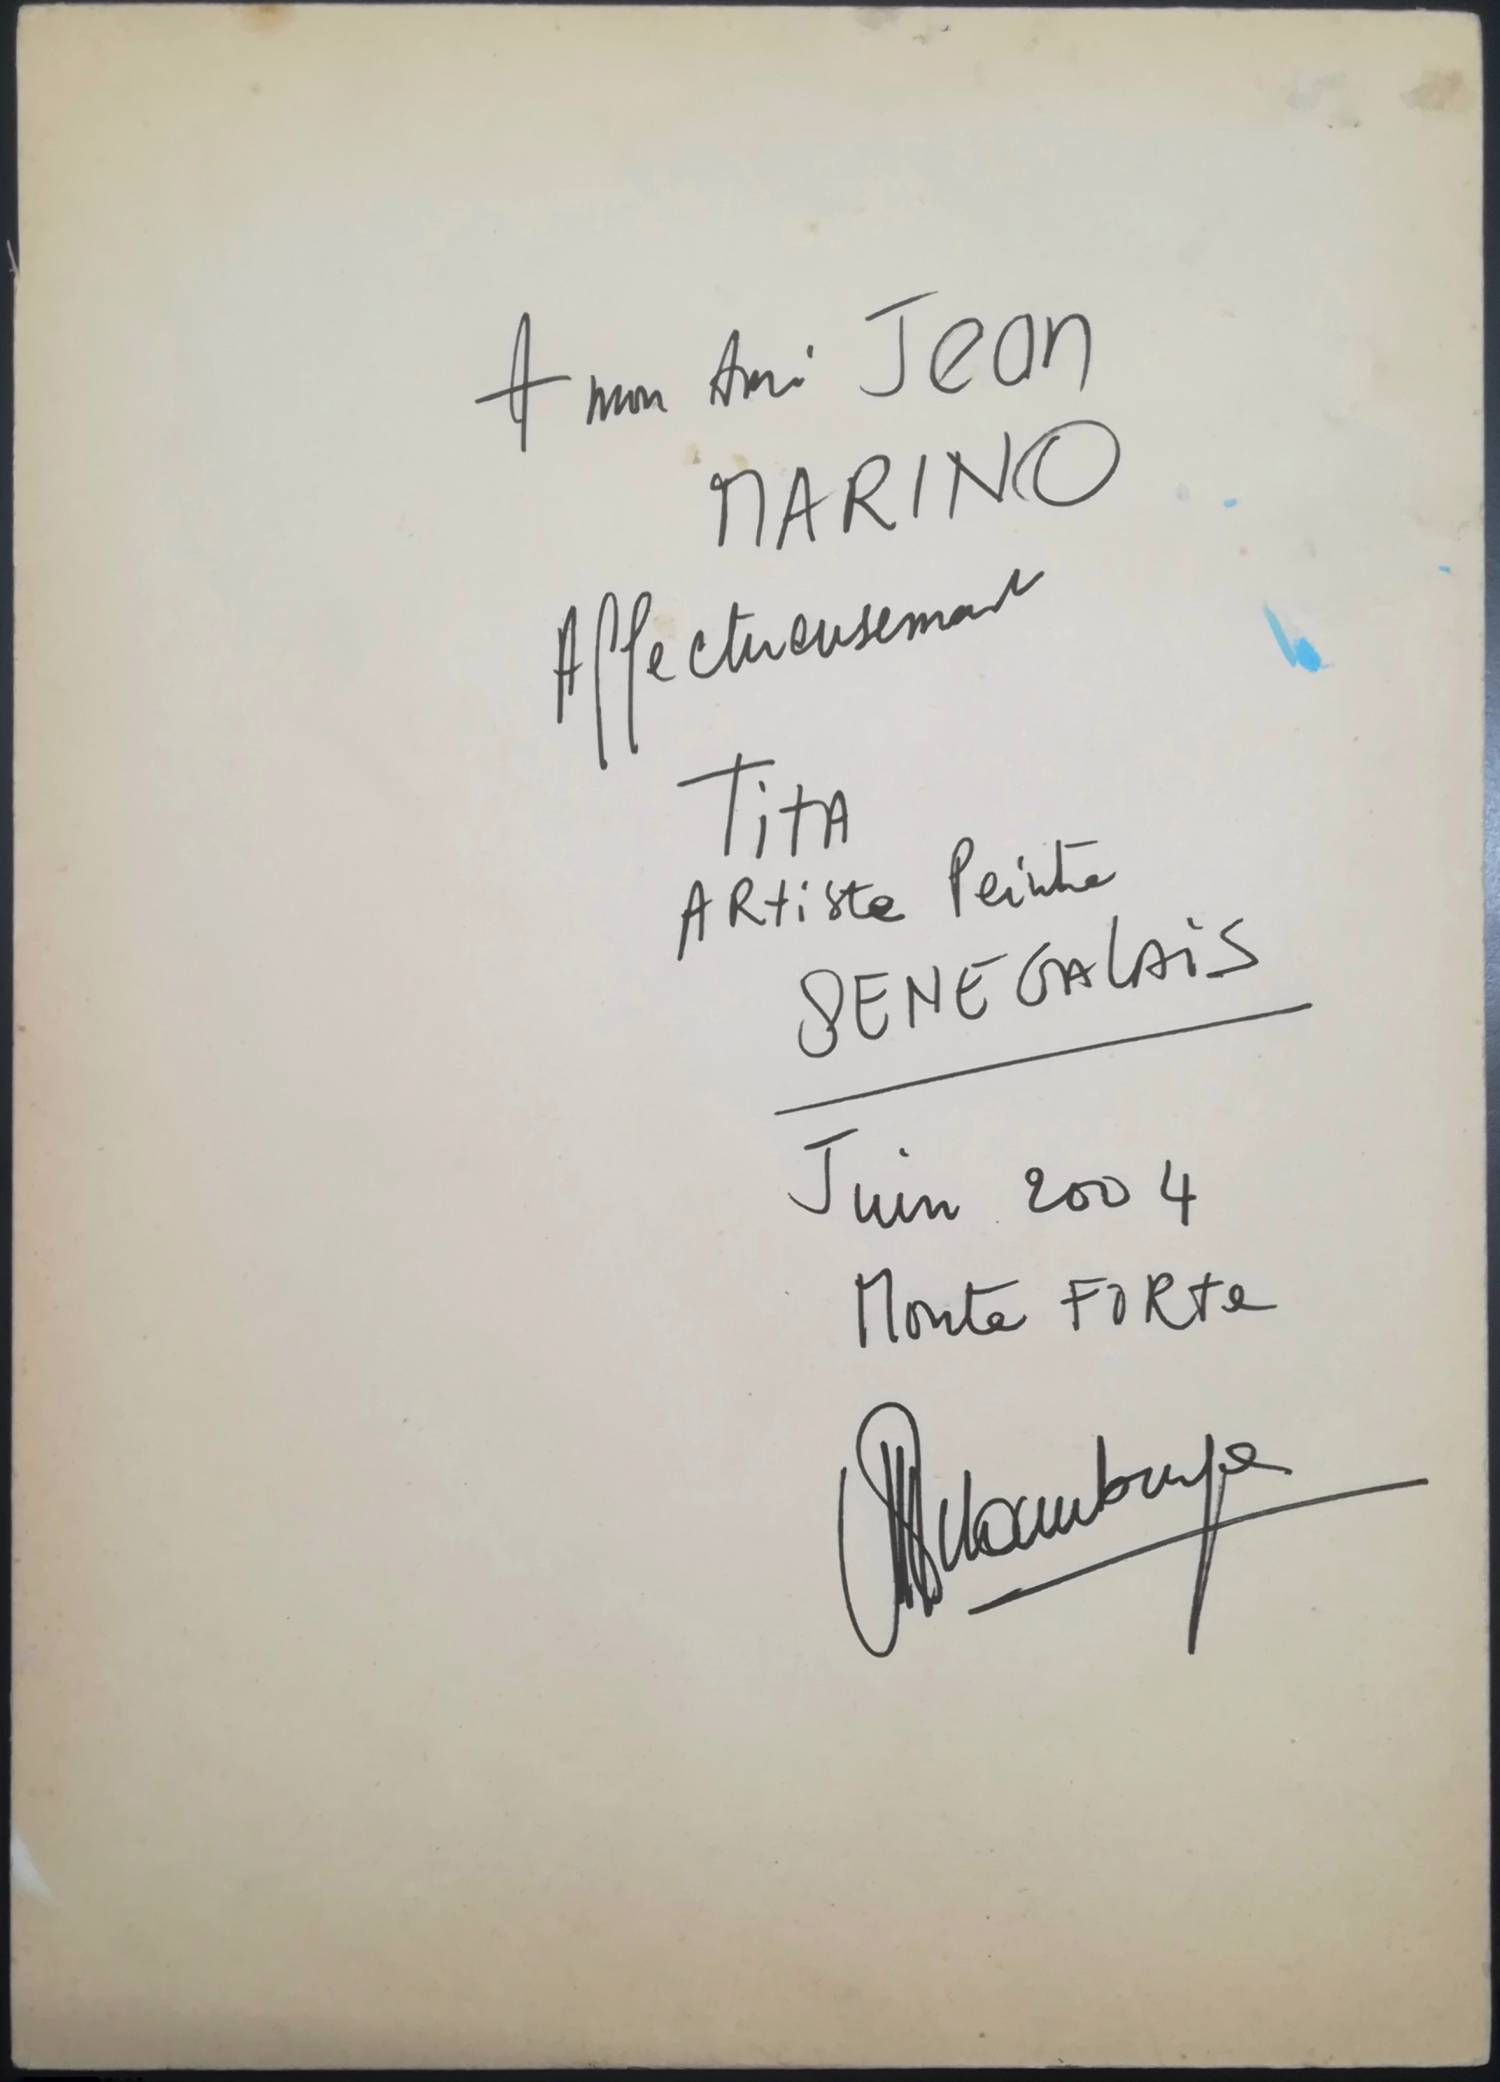 A mon Ami Jean
MARINO
Affectueusement
TitA
ARtiste Peintre
SENEGALAiS
Juin 2004
Monte FORte